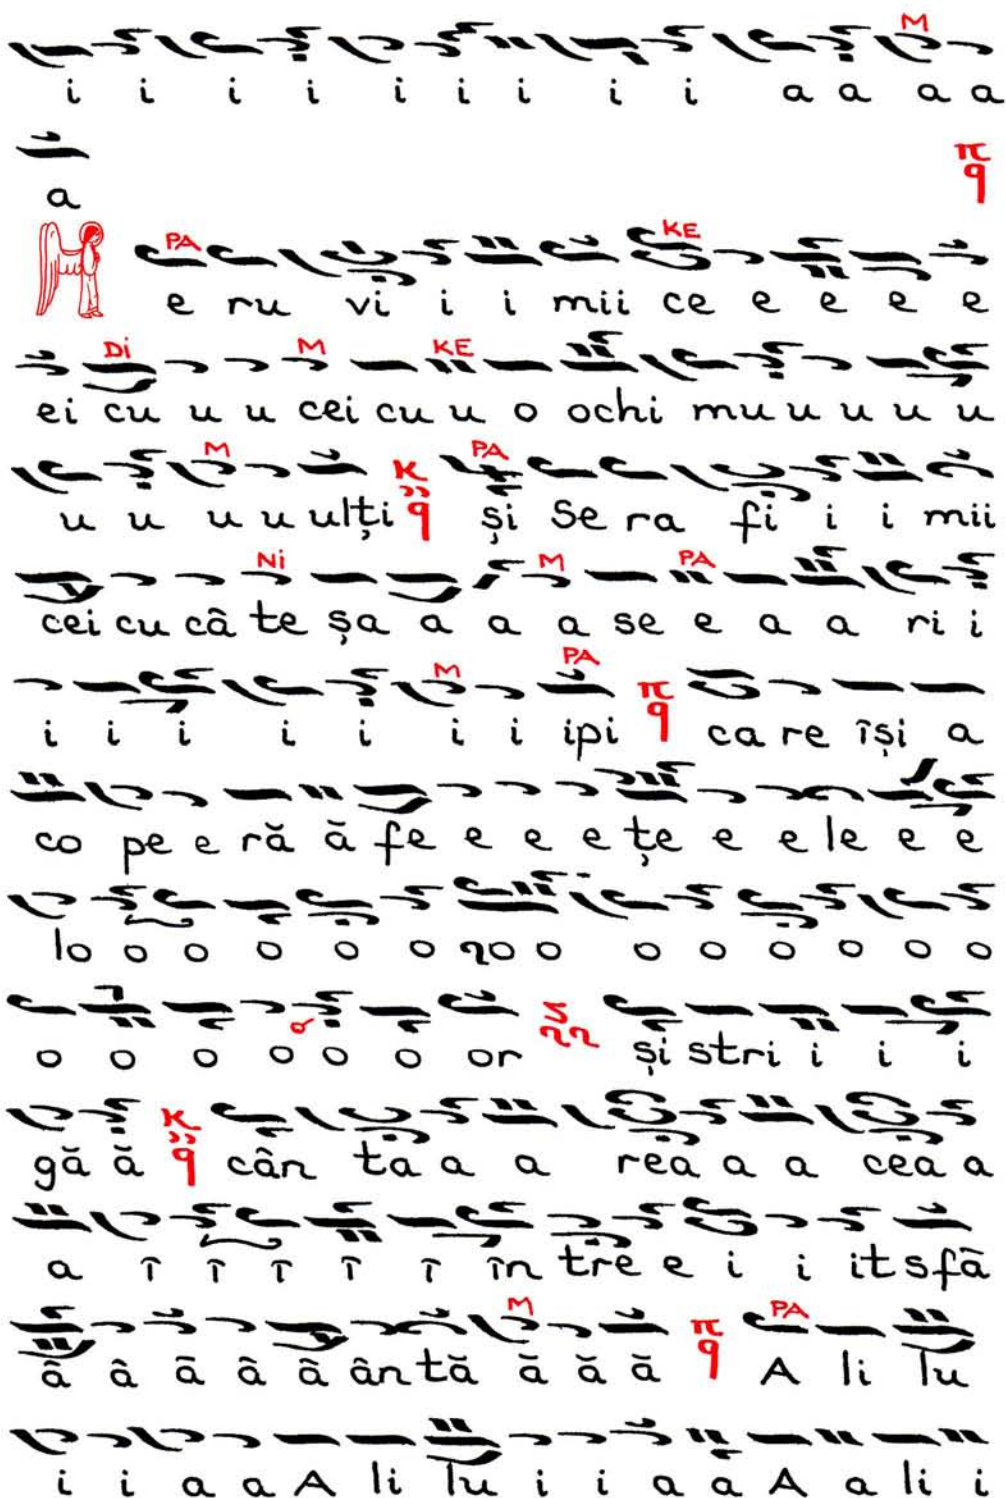 M
i i i i i i i i i a a a a
π q
a
PA KE
e ru vi i i mii ce e e e e
Di M KE
ei cu u u cei cu u o ochi mu u u u u
M K q PA
u u u u ulți și Se ra fi i i mii
Ni M PA
cei cu câ te șa a a a se e a a ri i
M PA π q
i i i i i i i ipi ca re își a
co pe e ră ă fe e e e țe e e le e e
lo o o o o o o o o o o o o o
o o o o o o or și stri i i i
K q
gă ă cân ta a a rea a a cea a
a î î î î în tre e i i it sfâ
M π q PA
â â â â â ân tă ă ă ă A li lu
i i a a A li lu i i a a A a li i